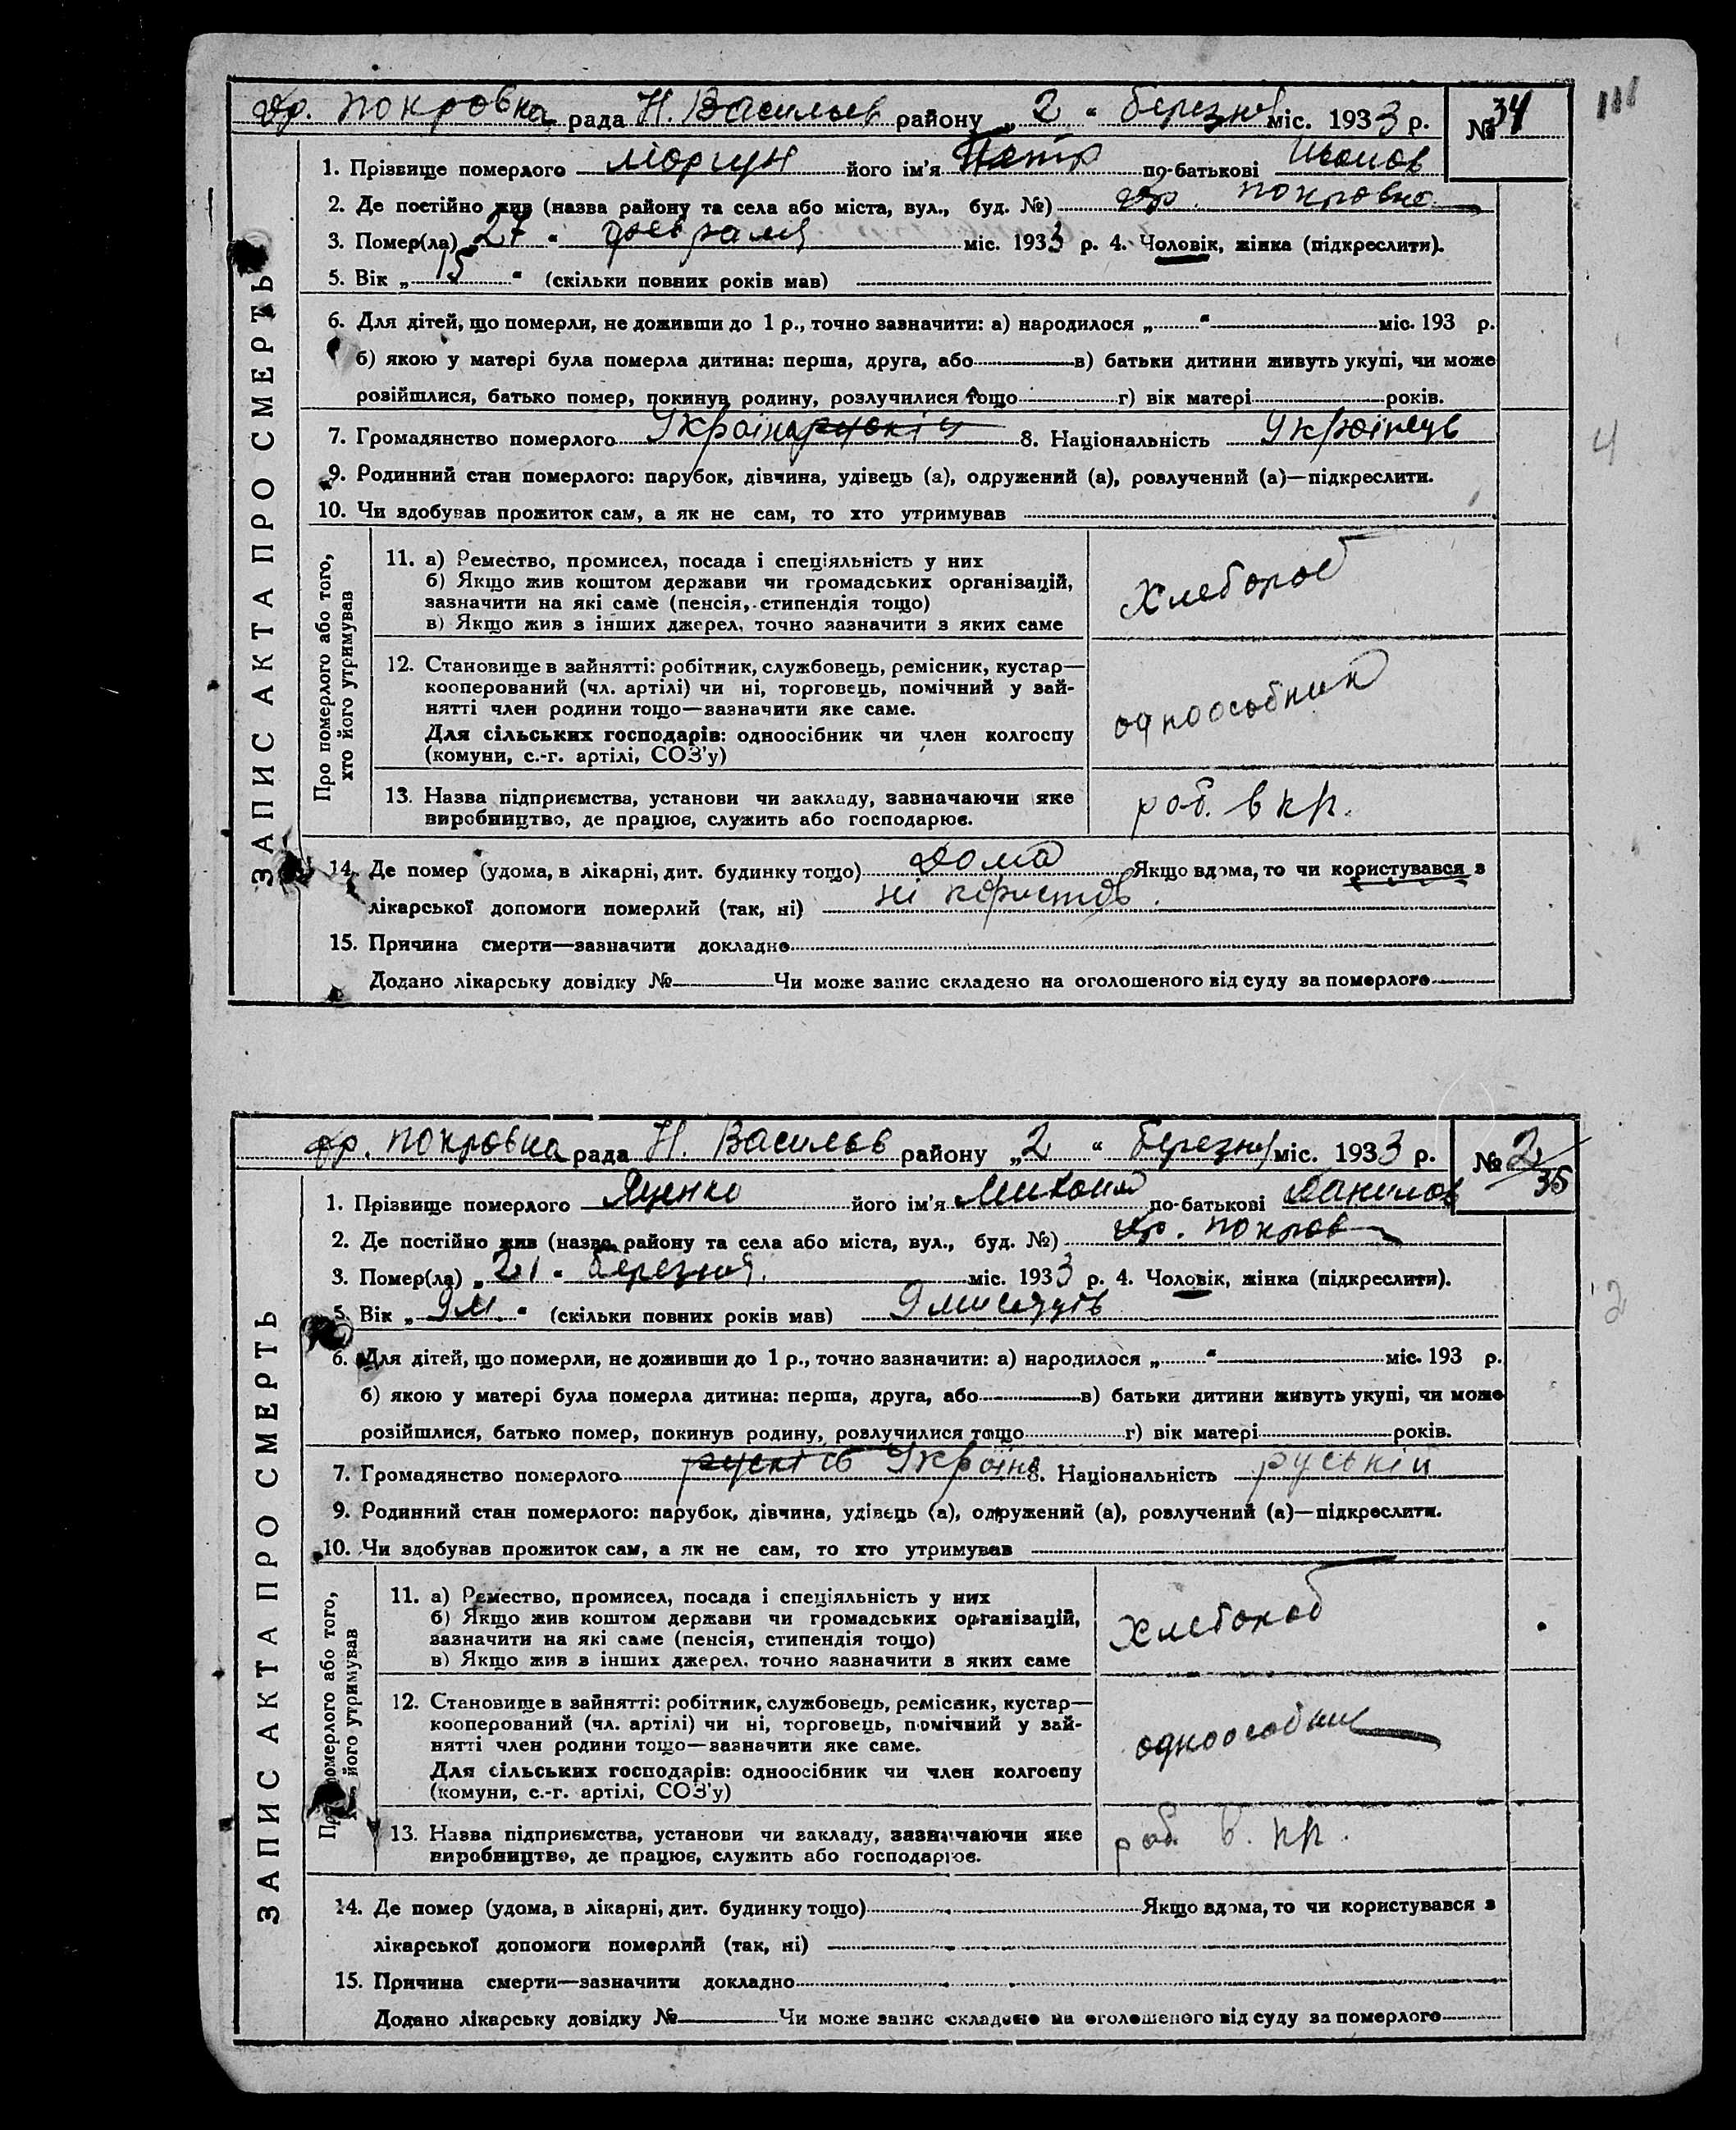 др. Покровка рада Н. Васильев району „ 2 “ березня міс. 1933 р. № 34
1. Прізвище померлого Моргун його ім'я Петр по-батькові
2. Де постійно жив (назва району та села або міста, вул., буд. №) др. Покровка
3. Помер(ла) 27 “ февраля міс. 1933 р. 4. Чоловік, жінка (підкреслити).
5. Вік „ 15 “ (скільки повних років мав)
6. Для дітей, що померли, не доживши до 1 р., точно зазначити: а) народилося „ “ міс. 193 р.
б) якою у матері була померла дитина: перша, друга, або в) батьки дитини живуть укупі, чи може
розійшлися, батько помер, покинув родину, розлучилися тощо г) вік матері років.
7. Громадянство померлого Україна руский 8. Національність Українець
9. Родинний стан померлого: парубок, дівчина, удівець (а), одружений (а), розлучений (а)—підкреслити.
10. Чи здобував прожиток сам, а як не сам, то хто утримував
ЗАПИС АКТА ПРО СМЕРТЬ
Про померлого або того,
хто його утримував
11. а) Ремество, промисел, посада і спеціяльність у них
б) Якщо жив коштом держави чи громадських організацій,
зазначити на які саме (пенсія, стипендія тощо)
в) Якщо жив з інших джерел, точно зазначити з яких саме
Хлебороб
12. Становище в зайнятті: робітник, службовець, ремісник, кустар—
кооперований (чл. артілі) чи ні, торговець, помічний у зай-
нятті член родини тощо—зазначити яке саме.
Для сільських господарів: одноосібник чи член колгоспу
(комуни, с.-г. артілі, СОЗ'у)
одноособник
13. Назва підприємства, установи чи закладу, зазначаючи яке
виробництво, де працює, служить або господарює.
роб. в кр.
14. Де помер (удома, в лікарні, дит. будинку тощо) дома Якщо вдома, то чи користувався з
лікарської допомоги померлий (так, ні) ні користов.
15. Причина смерти—зазначити докладно
Додано лікарську довідку № Чи може запис складено на оголошеного від суду за померлого
4
др. Покровка рада Н. Васильев району „ 2 “ березня міс. 1933 р. № 2
35
1. Прізвище померлого Яценко його ім'я Микола по-батькові Данилов
2. Де постійно жив (назва району та села або міста, вул., буд. №) др. Покров
3. Помер(ла) „ 21 “ березня. міс. 1933 р. 4. Чоловік, жінка (підкреслити).
5. Вік „ 9 м. “ (скільки повних років мав) 9 мисяців
6. Для дітей, що померли, не доживши до 1 р., точно зазначити: а) народилося „ “ міс. 193 р.
б) якою у матері була померла дитина: перша, друга, або в) батьки дитини живуть укупі, чи може
розійшлися, батько помер, покинув родину, розлучилися тощо г) вік матері років.
7. Громадянство померлого Україна 8. Національність руський
9. Родинний стан померлого: парубок, дівчина, удівець (а), одружений (а), розлучений (а)—підкреслити.
10. Чи здобував прожиток сам, а як не сам, то хто утримував
2
ЗАПИС АКТА ПРО СМЕРТЬ
Про померлого або того,
його утримував
11. а) Ремество, промисел, посада і спеціяльність у них
б) Якщо жив коштом держави чи громадських організацій,
зазначити на які саме (пенсія, стипендія тощо)
в) Якщо жив з інших джерел, точно зазначити з яких саме
Хлебороб
12. Становище в зайнятті: робітник, службовець, ремісник, кустар—
кооперований (чл. артілі) чи ні, торговець, помічний у зай-
нятті член родини тощо—зазначити яке саме.
Для сільських господарів: одноосібник чи член колгоспу
(комуни, с.-г. артілі, СОЗ'у)
одноособник
13. Назва підприємства, установи чи закладу, зазначаючи яке
виробництво, де працює, служить або господарює.
роб. в. кр.
14. Де помер (удома, в лікарні, дит. будинку тощо) Якщо вдома, то чи користувався з
лікарської допомоги померлий (так, ні)
15. Причина смерти—зазначити докладно
Додано лікарську довідку № Чи може запис складено на оголошеного від суду за померлого